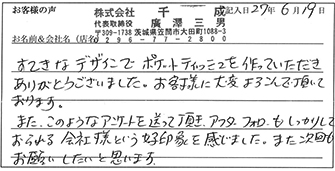 お客様の声
株式会社 千成 記入日 27年6月19日
代表取締役 廣澤三男
〒309-1738 茨城県笠間市大田町1088-3
お名前&会社名(店名) 296-77-2800
すてきなデザインでポケットティッシュを作っていただき
ありがとうございました。お客様に大変よろこんで頂いて
おります。
また、このようなアンケートを送って頂き、アフターフォローもしっかりして
おられる会社様という好印象を感じました。また次回も
お願いしたいと思います。